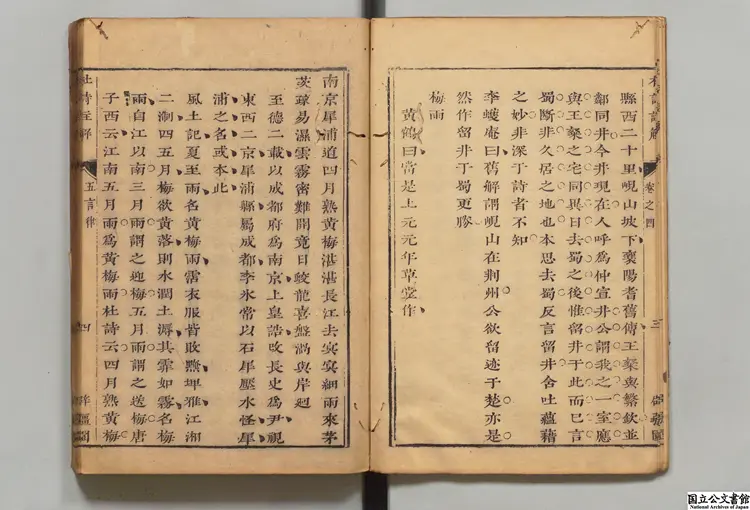 縣西二十里峴山坡下襄陽耆舊傳王粲與繁欽並
鄰同井今井現在人呼爲仲宣井公謂我之一室應
與王粲之宅同異日去蜀之後惟留井于此而巳言
蜀斷非久居之地也本思去蜀反言留井含吐蘊藉
之妙非深于詩者不知
李蠖庵曰舊解謂峴山在荆州公欲留迹于楚亦是
然作留井于蜀更勝
梅雨
黃鶴曰當是上元元年草堂作
卷之四
三
南京犀浦道四月熟黃梅湛湛長江去冥冥細雨來茅
茨疎易濕雲霧密難開竟日蛟龍喜盤渦與岸迴
至德二載以成都府爲南京上皇誥改長史爲尹視
東西二京犀浦縣屬成都李氷常以石犀壓水怪犀
浦之名或本此
風土記夏至雨名黃梅雨霑衣服皆敗黦埤雅江湘
二淛四五月梅欲黃落則水潤土溽其霏如霧名梅
雨自江以南三月雨謂之迎梅五月雨謂之送梅唐
子西云江南五月雨爲黃梅雨杜詩云四月熟黃梅
杜詩
五言律
四
国立公文書館
National Archives of Japan